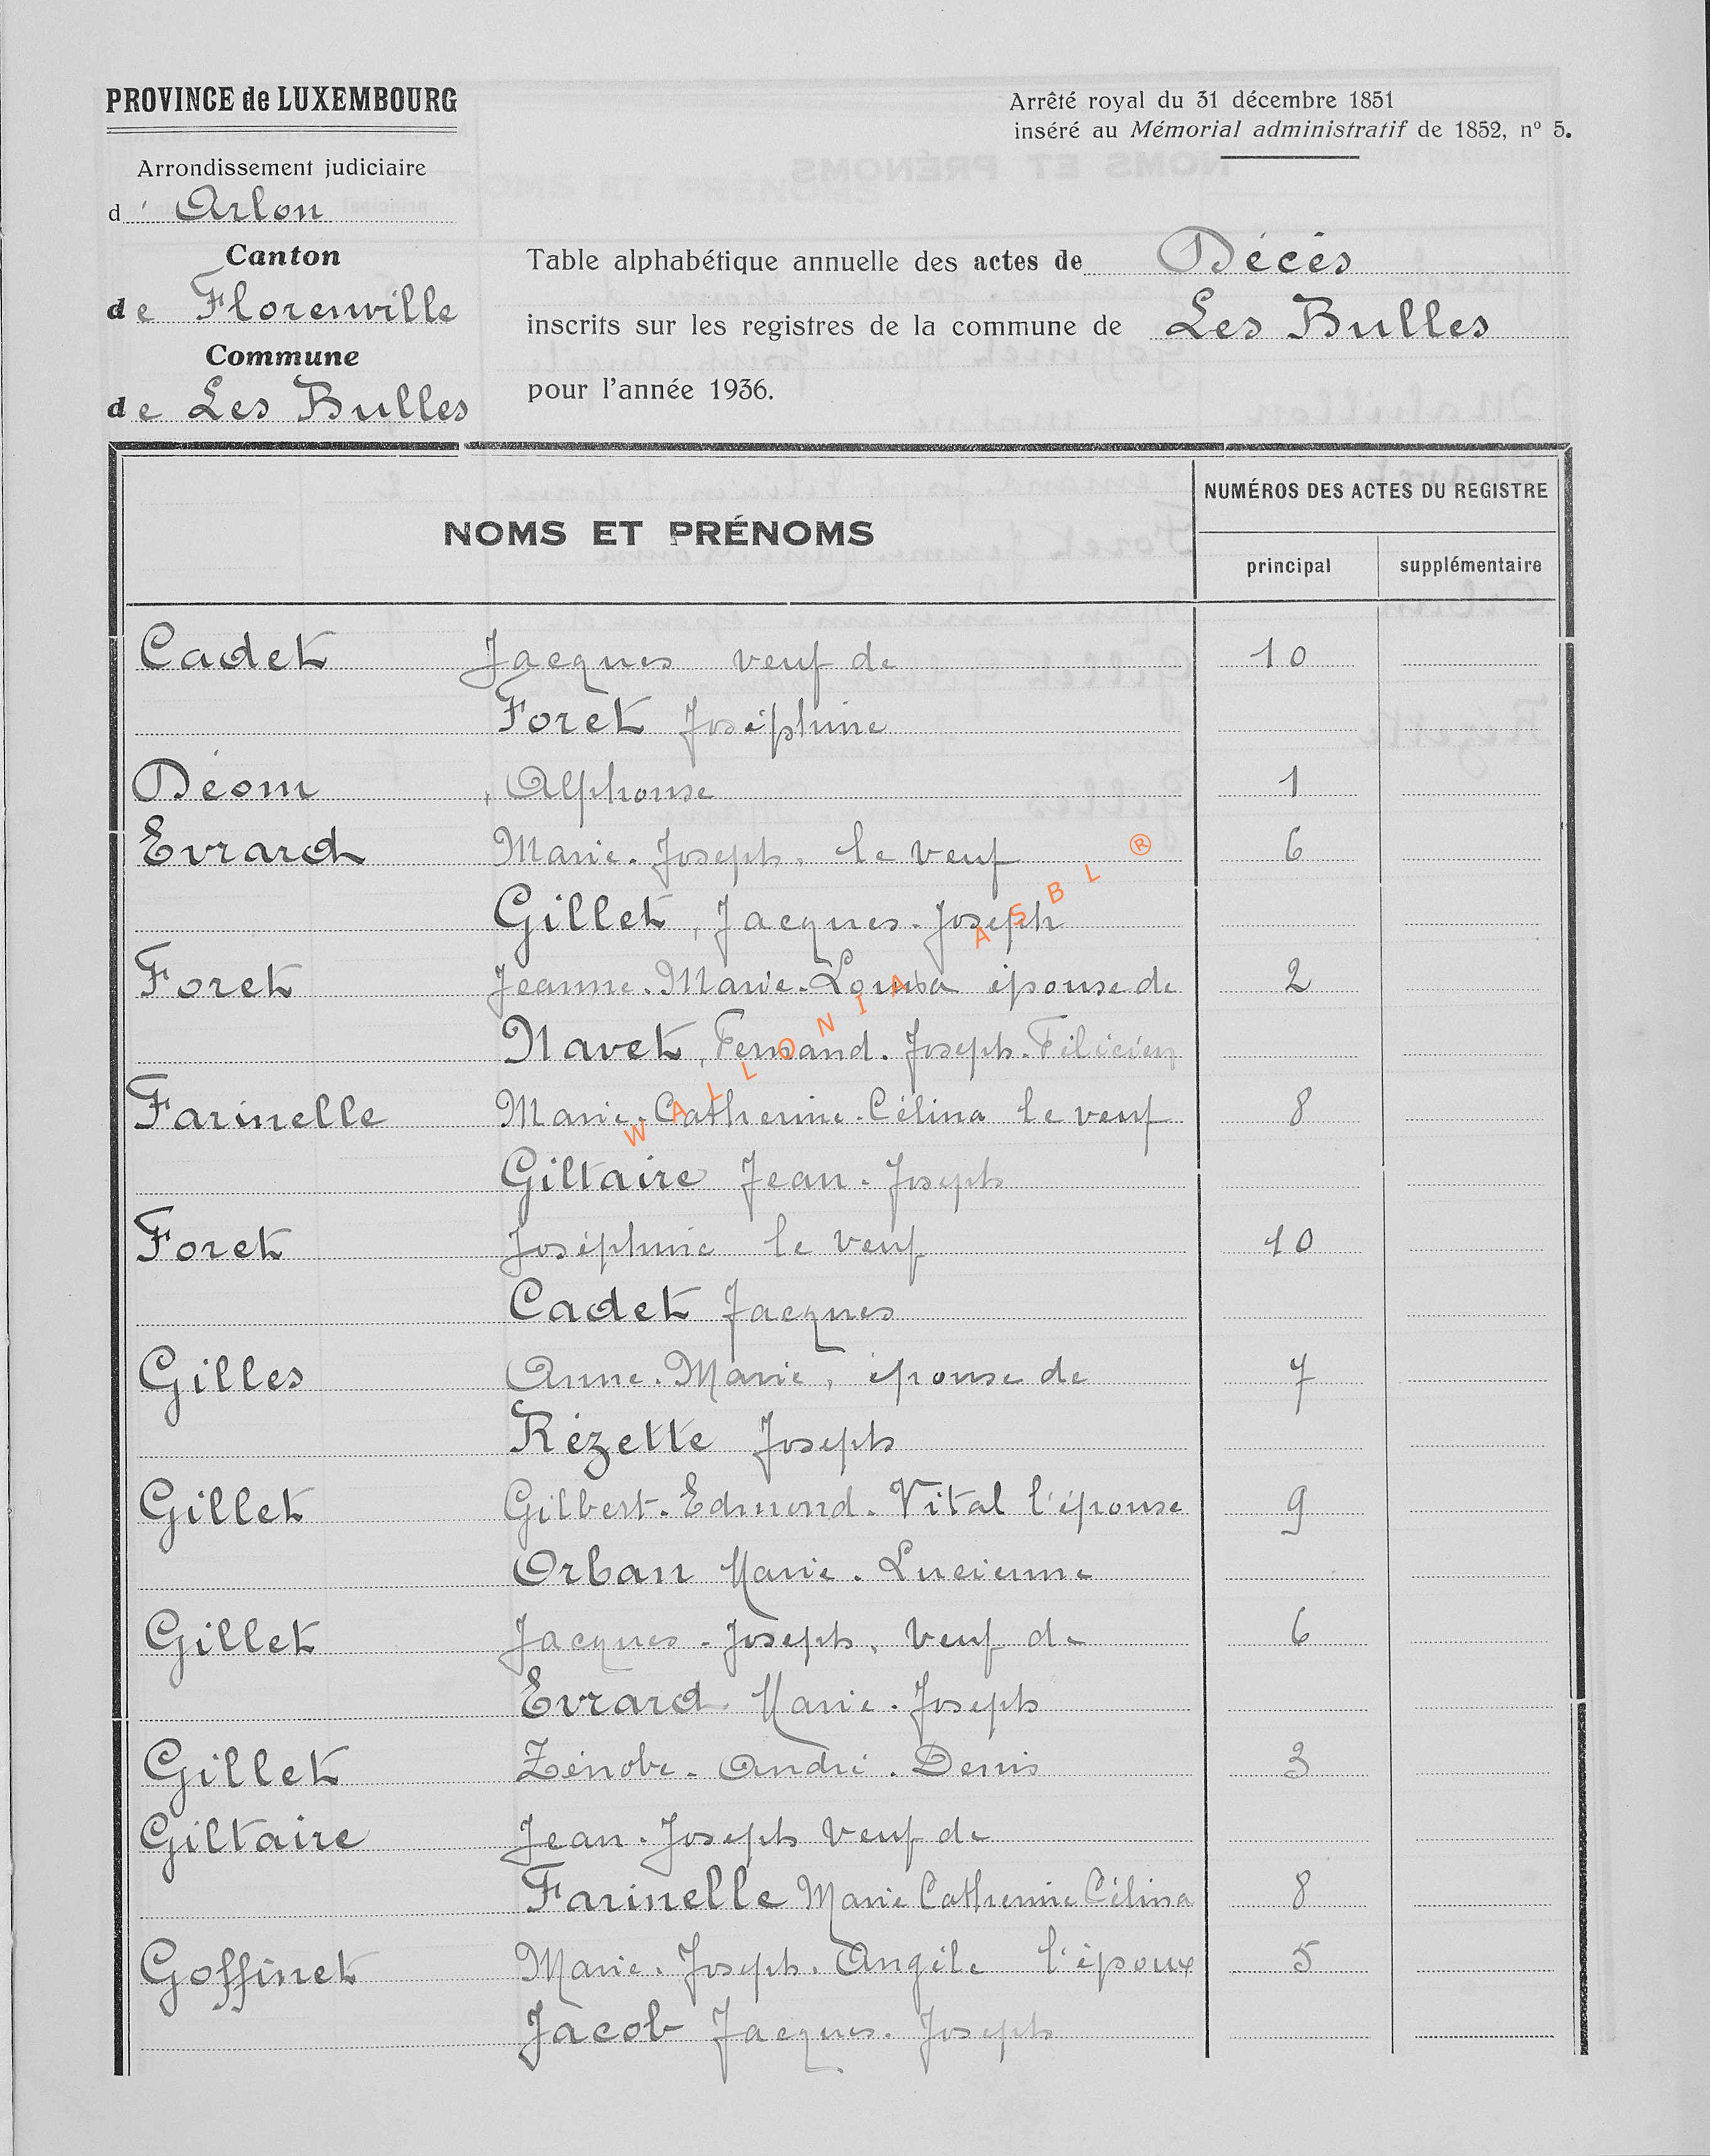 PROVINCE de LUXEMBOURG
Arrondissement judiciaire
d' Arlon
Canton
de Florenville
Commune
de Les Bulles
Arrêté royal du 31 décembre 1851
inséré au Mémorial administratif de 1852, nº 5.
Table alphabétique annuelle des actes de Décès
inscrits sur les registres de la commune de Les Bulles
pour l'année 1936.
NOMS ET PRÉNOMS
NUMÉROS DES ACTES DU REGISTRE
principal supplémentaire
Cadet Jacques veuf de 10
Foret Joséphine
Déom Alphonse 1
Evrard Marie-Joseph, le veuf 6
Gillet, Jacques-Joseph
Foret Jeanne-Marie-Louisa épouse de 2
Navet, Fernand-Joseph-Félicien
Farinelle Marie-Catherine-Célina le veuf 8
Giltaire Jean-Joseph
Foret Joséphine le veuf 10
Cadet Jacques
Gilles Anne-Marie, épouse de 7
Rézette Joseph
Gillet Gilbert-Edmond-Vital l'épouse 9
Orban Marie-Lucienne
Gillet Jacques-Joseph, veuf de 6
Evrard Marie-Joseph
Gillet Zénobe-André-Denis 3
Giltaire Jean-Joseph veuf de
Farinelle Marie Catherine Célina 8
Goffinet Marie-Joseph-Angèle l'époux 5
Jacob Jacques-Joseph
WALLONIA ASBL ®